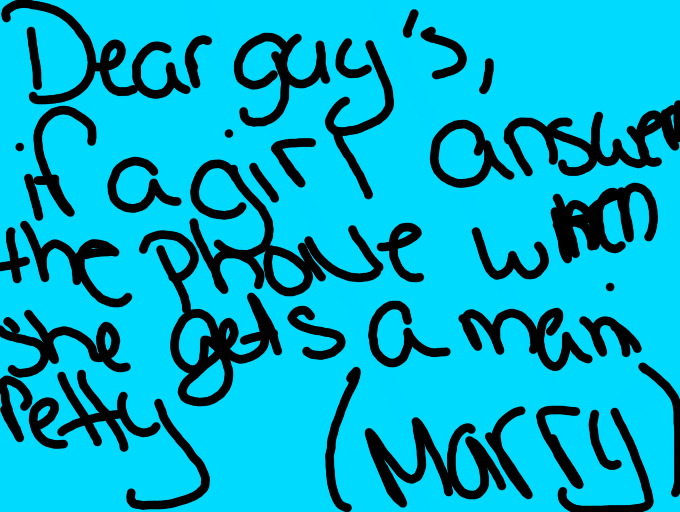 Dear guy's,
if a girl answer
the phone when
she gets a mani
Petty (Marry)